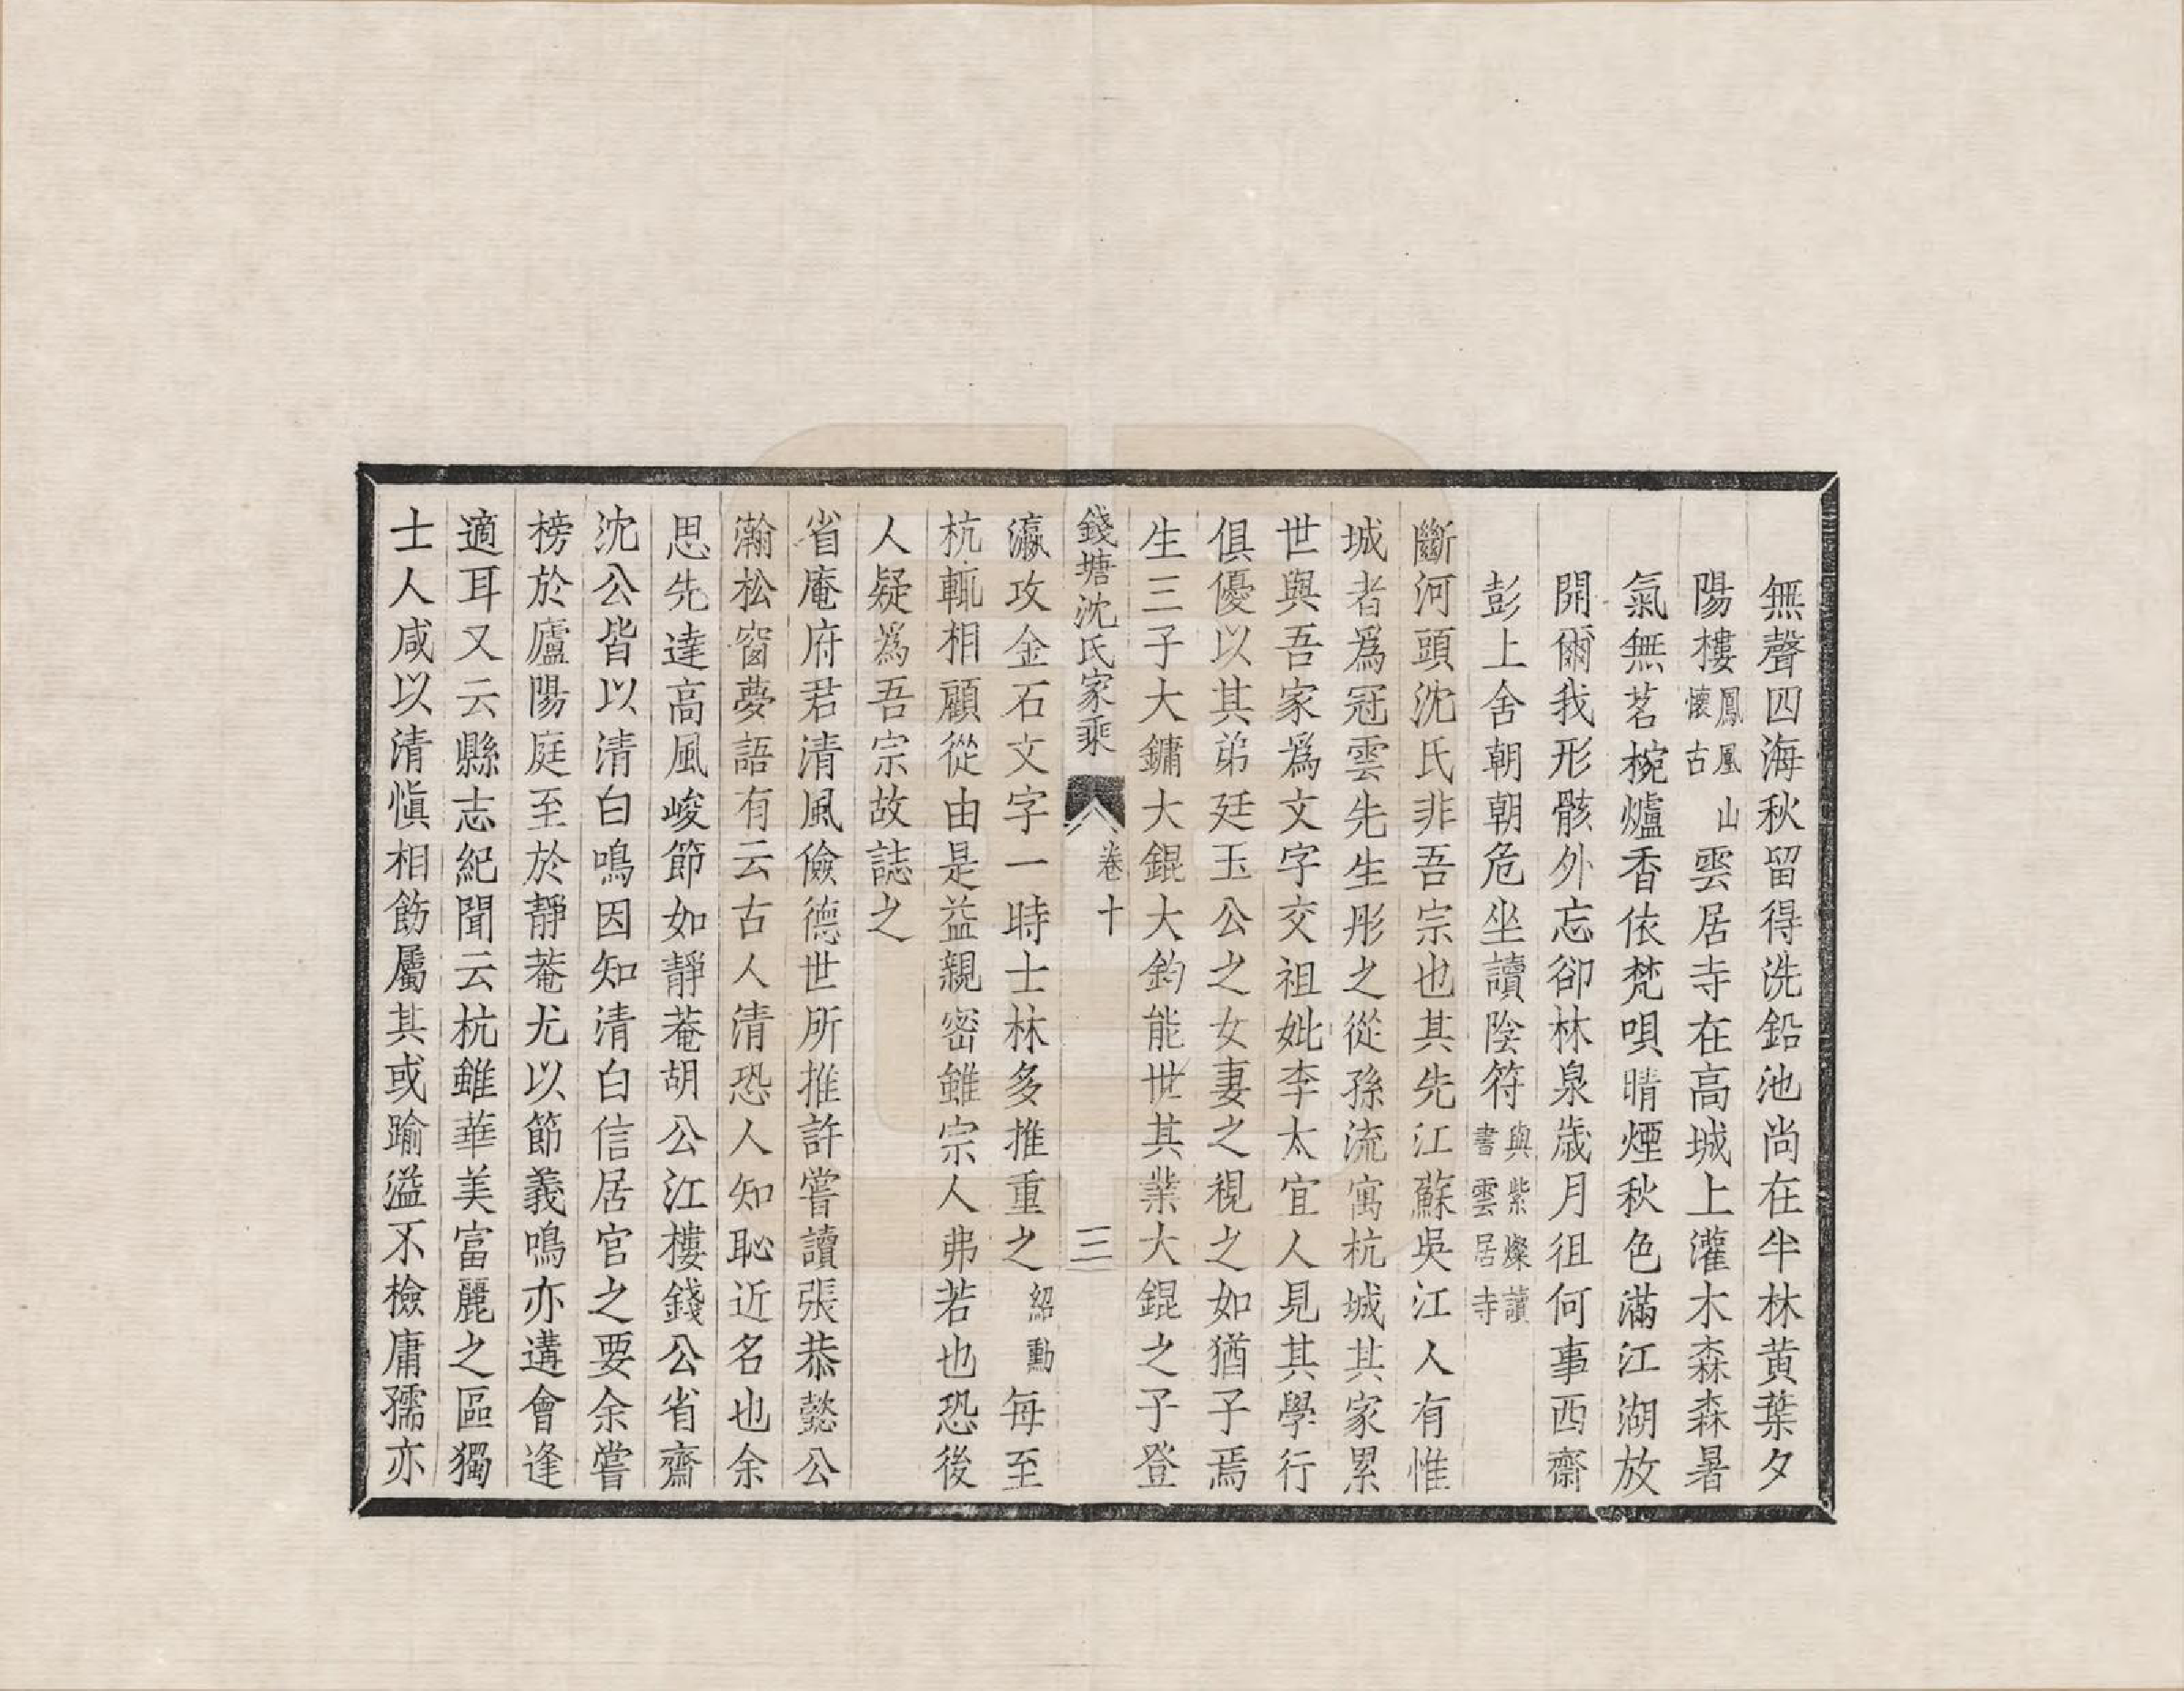 無聲四海秋留得洗鉛池尚在半林黃葉夕
陽樓鳳凰山懷古雲居寺在高城上灌木森森暑
氣無茗椀爐香依梵唄晴煙秋色滿江湖放
開爾我形骸外忘卻林泉歲月徂何事西齋
彭上舍朝朝危坐讀陰符與紫燦讀書雲居寺
斷河頭沈氏非吾宗也其先江蘇吳江人有惟
城者爲冠雲先生彤之從孫流寓杭城其家累
世與吾家爲文字交祖妣李太宜人見其學行
俱優以其弟廷玉公之女妻之視之如猶子焉
生三子大鏞大錕大鈞能世其業大錕之子登
錢塘沈氏家乘
卷十
三
瀛攻金石文字一時士林多推重之紹勳每至
杭輒相顧從由是益親密雖宗人弗若也恐後
人疑爲吾宗故誌之
省庵府君清風儉德世所推許嘗讀張恭懿公
瀚松窗夢語有云古人清恐人知恥近名也余
思先達高風峻節如靜菴胡公江樓錢公省齋
沈公皆以清白鳴因知清白信居官之要余嘗
榜於廬陽庭至於靜菴尤以節義鳴亦遘會逢
適耳又云縣志紀聞云杭雖華美富麗之區獨
士人咸以清愼相飭屬其或踰溢不檢庸孺亦